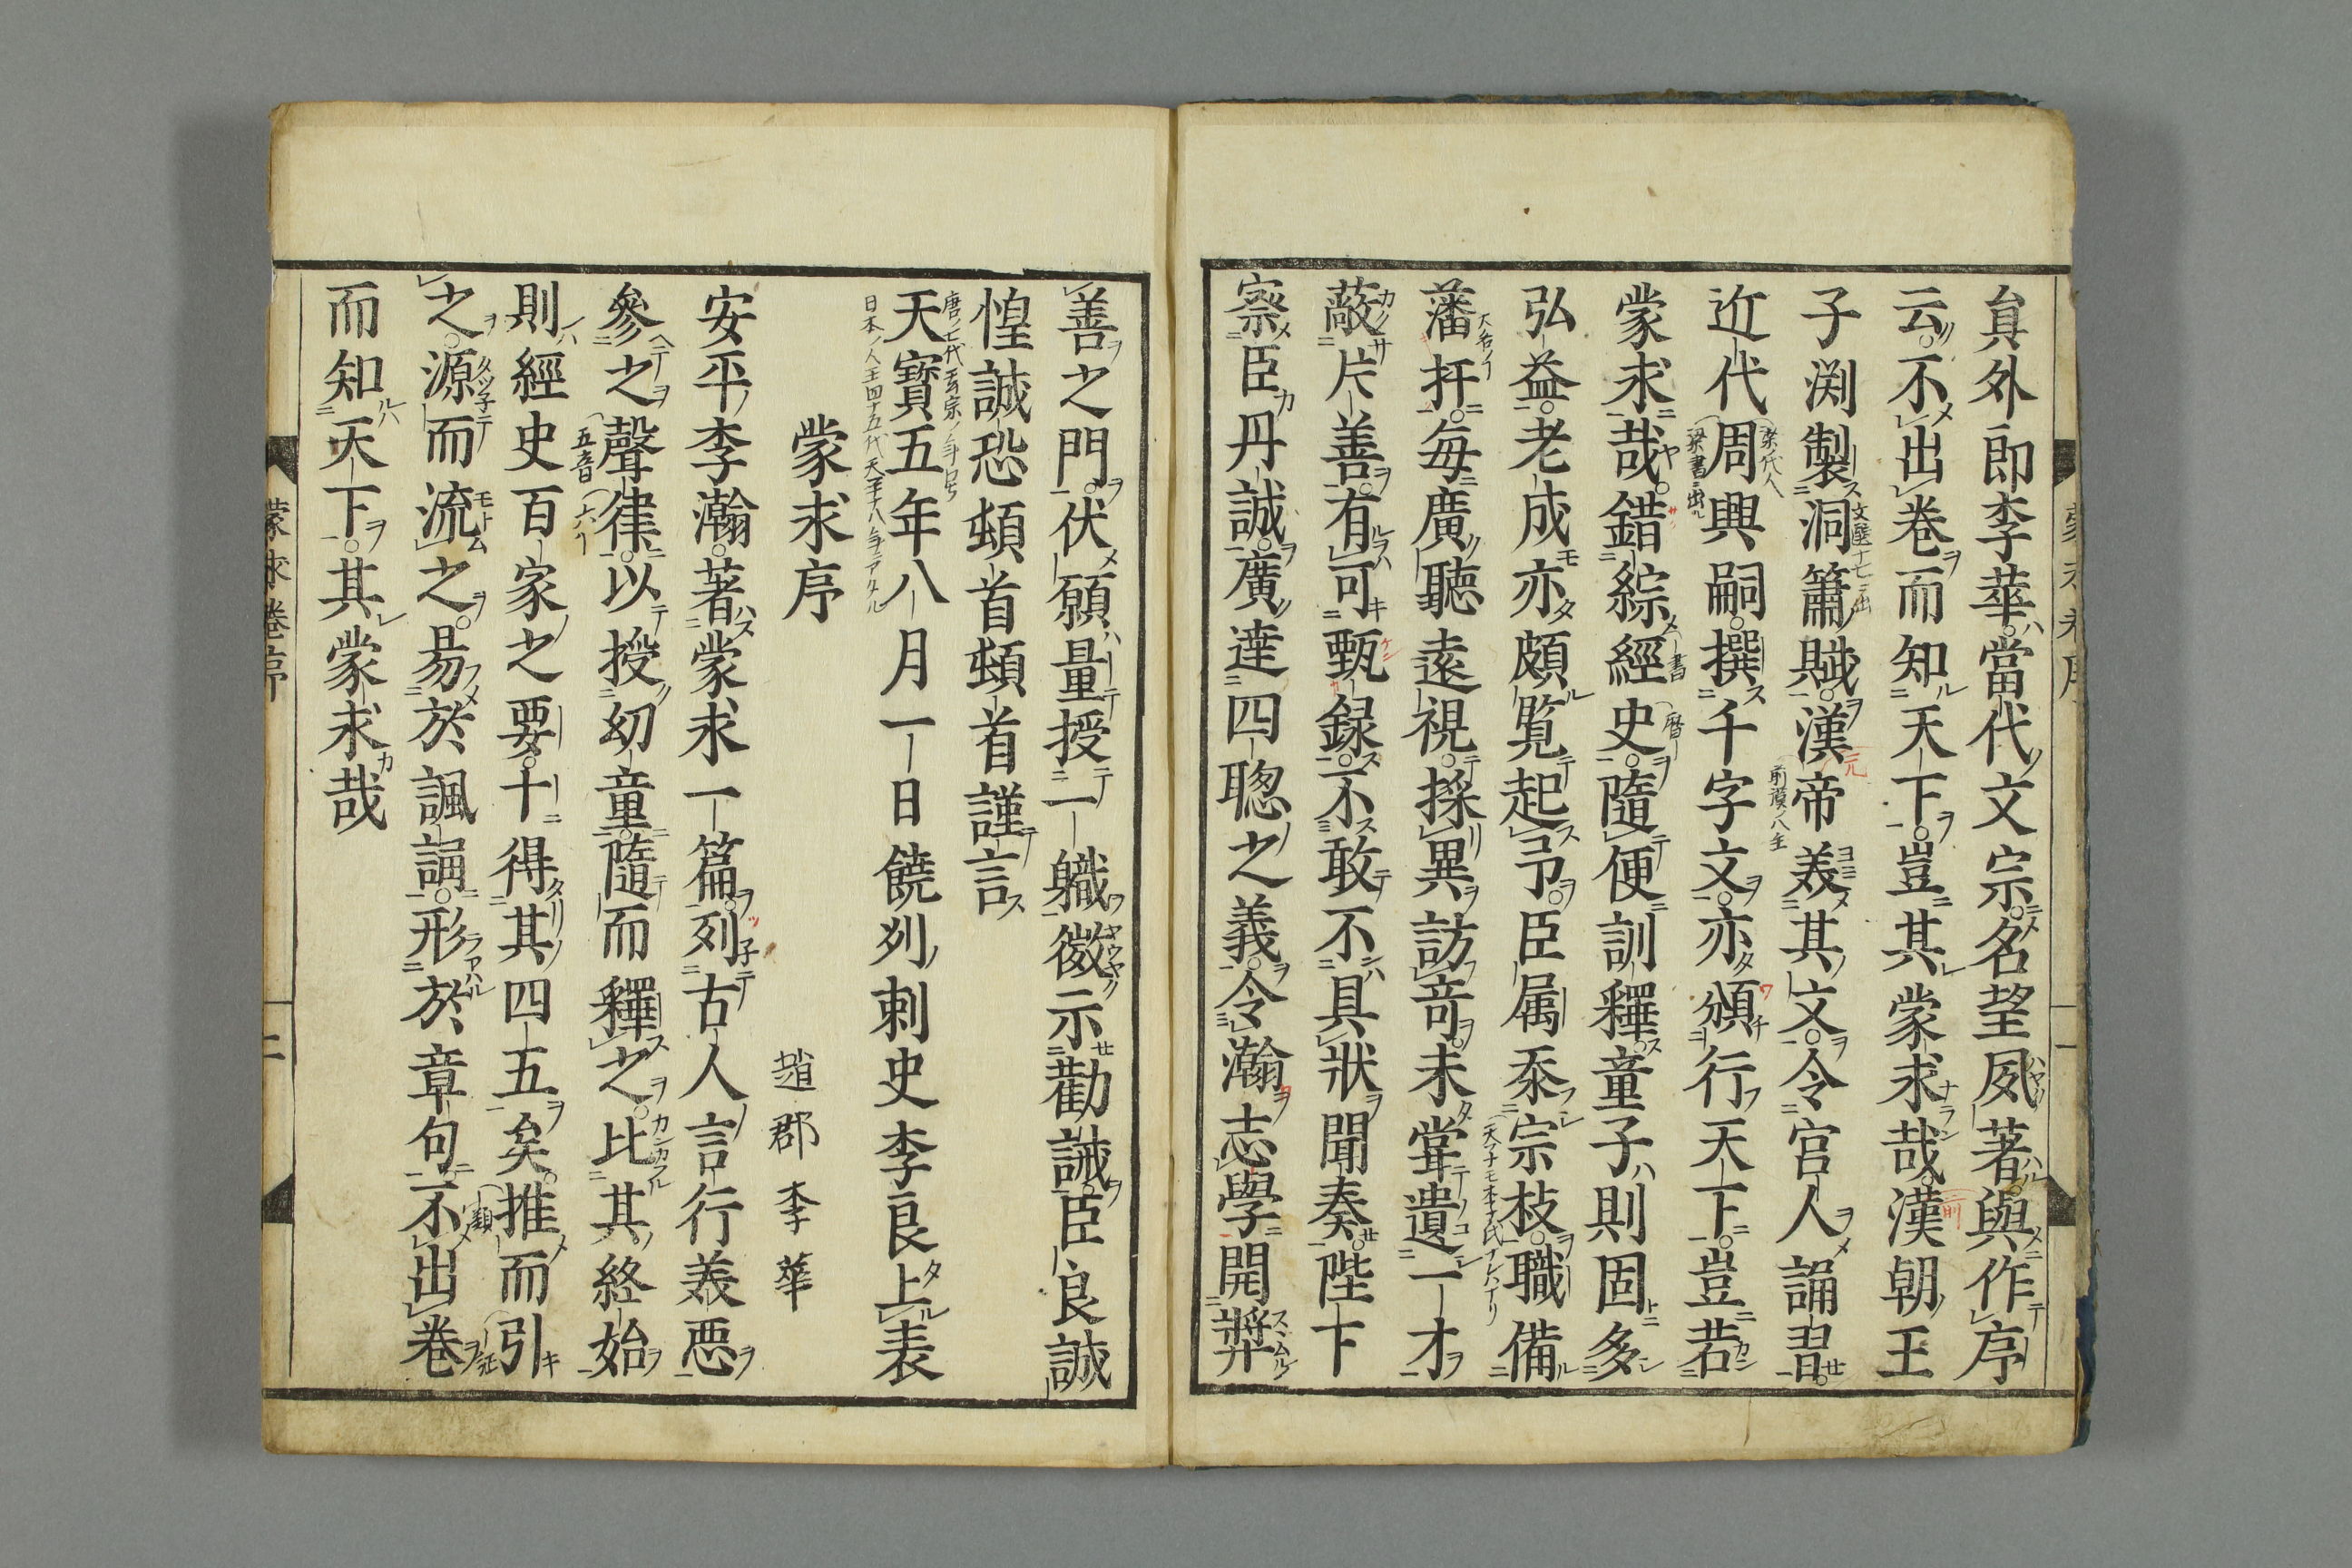 貟外即李華當代文宗名望夙著與作序
云不出卷而知天下豈其蒙求哉漢朝王
子渕製洞簫賦漢帝美其文令官人誦習
近代周興嗣撰千字文亦頒行天下豈若
蒙求哉錯綜經史隨便訓釋童子則固多
弘益老成亦頗覧起予臣属忝宗枝職備
藩扞每廣聽遠視採異訪竒未甞遺一才
蔽片善有可甄録不敢不具狀聞奏陛下
察臣丹誠廣達四聦之義令瀚志學開奬
善之門伏願量授一職微示勸誡臣良誠
惶誠恐頓首頓首謹言
天寶五年八月一日饒列刺史李良上表
蒙求序
趙郡李華
安平李瀚著蒙求一篇列古人言行美惡
參之聲律以授幼童隨而釋之比其終始
則經史百家之要十得其四五矣推而引
之源而流之易於諷誦形於章句不出卷
而知天下其蒙求哉
蒙求卷序
二